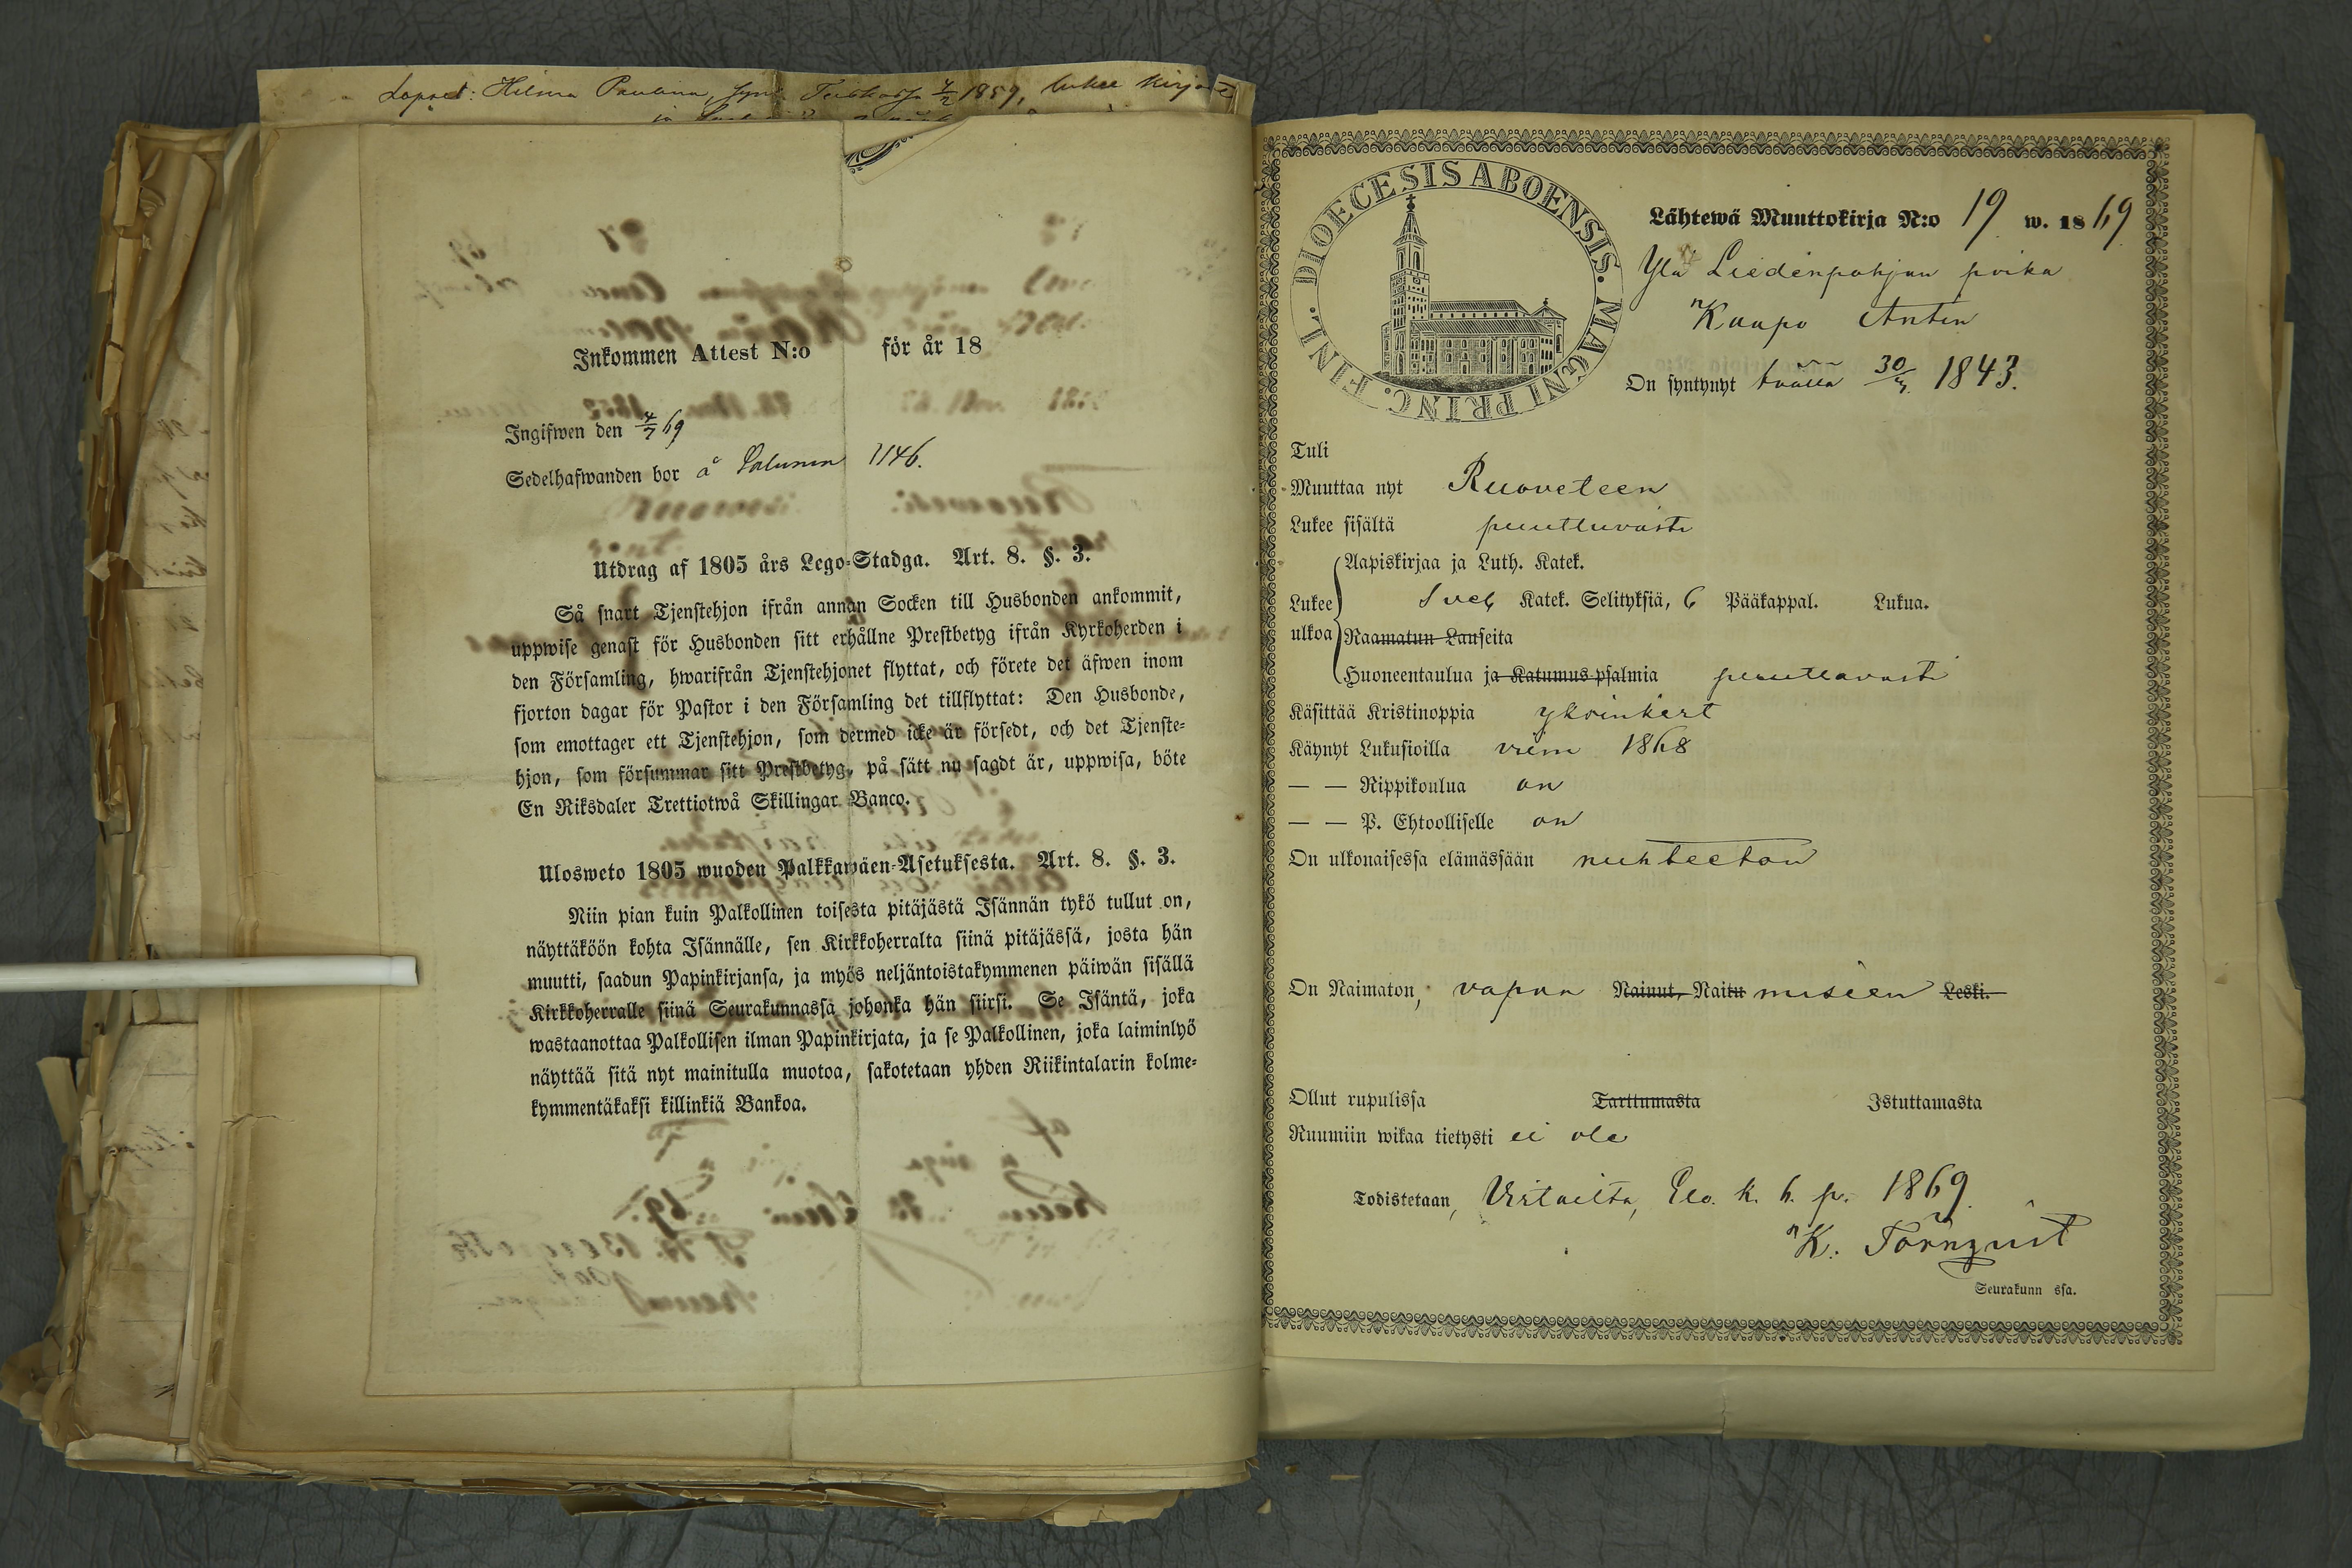 Lapset: Hilma Paulina, synt. Teiskossa 4/2 1859, lukee kirjaa
Inkommen Attest N:o för år 18
Ingifwen den 4/7 69
Sedelhafwanden bor å 1146.
Utdrag af 1805 års Lego-Stadga. Art. 8. §. 3.
Så snart Tjenstehjon ifrån annan Socken till Husbonden ankommit,
uppwise genast för Husbonden sitt erhållne Prestbetyg ifrån Kyrkoherden i
den Församling, hwarifrån Tjenstehjonet flyttat, och förete det äfwen inom
fjorton dagar för Pastor i den Församling det tillflyttat: Den Husbonde,
som emottager ett Tjenstehjon, som dermed icke är försedt, och det Tjenste-
hjon, som försummar sitt Prestbetyg, på sätt nu sagdt är, uppwisa, böte
En Riksdaler Trettiotwå Skillingar Banco.
Ulosweto 1805 wuoden Palkkawäen-Asetuksesta. Art. 8. §. 3.
Niin pian kuin Palkollinen toisesta pitäjästä Isännän tykö tullut on,
näyttäköön kohta Isännälle, sen Kirkkoherralta siinä pitäjässä, josta hän
muutti, saadun Papinkirjansa, ja myös neljäntoistakymmenen päiwän sisällä
Kirkkoherralle siinä Seurakunnassa johonka hän siirsi. Se Isäntä, joka
wastaanottaa Palkollisen ilman Papinkirjata, ja se Palkollinen, joka laiminlyö
näyttää sitä nyt mainitulla muotoa, sakotetaan yhden Riikintalarin kolme-
kymmentäkaksi killinkiä Bankoa.
DIOECESIS ABOENSIS. MAGNI PRINC. FINL.
Lähtewä Muuttokirja N:o 19 w. 1869
Ylä Liedenpohjan poika
Kaapo Antin
On syntynyt täällä 30/4 1843.
Tuli
Muuttaa nyt Ruoveteen
Lukee sisältä puuttuvasti
Aapiskirjaa ja Luth. Katek.
Lukee Sveb Katek. Selityksiä, 6 Pääkappal. Lukua.
ulkoa Raamatun Lauseita
Huoneentaulua ja Katumus-psalmia puuttuvasti
Käsittää Kristinoppia yksinkert
Käynyt Lukusioilla viim 1868
— — Rippikoulua on
— — P. Ehtoolliselle on
On ulkonaisessa elämässään nuhteeton
On Naimaton, vapaa Nainut, Naitu naiseen Leski.
Ollut rupulissa Tarttumasta Istuttamasta
Ruumiin wikaa tietysti ei ole
Todistetaan, Virtailta, Elo. k. 6. p. 1869.
K. Törnqvist
Seurakunn ssa.